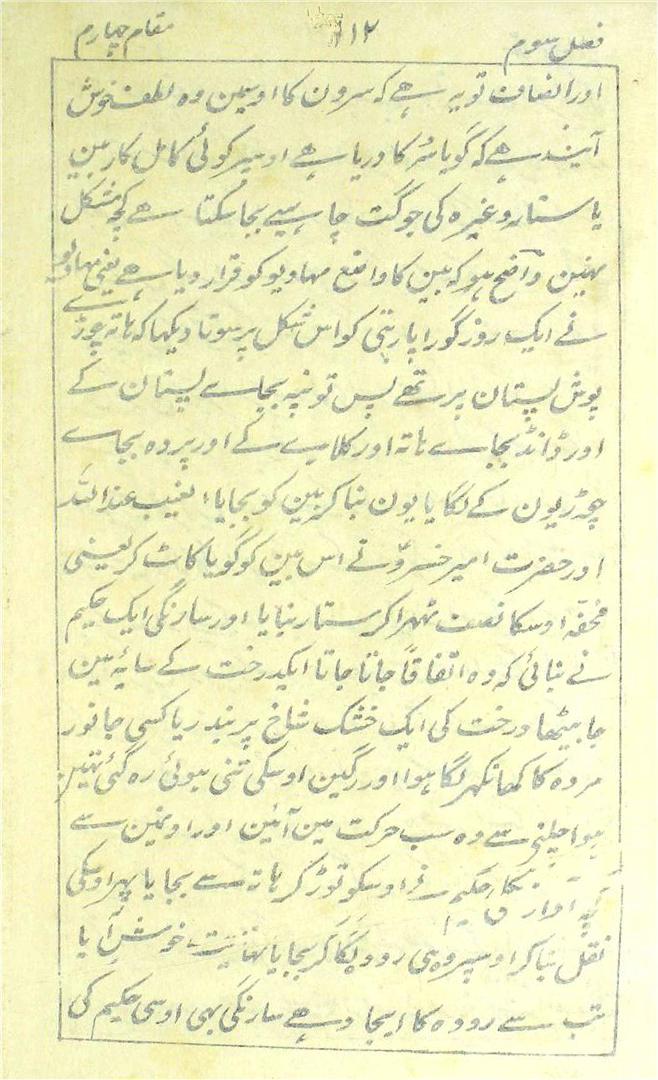 فصل سوم ۱۱۲ مقام چہارم
اور انصاف تو یہ ہے کہ سرون کا اوسین وہ لطف خوش
آیند ہے کہ گویا سُر کا دریا ہے اوسپر کوئی کامل کار بین
یا ستار وغیرہ کی جو گت چاہیے بجا سکتا ہے کچھ مشکل
نہین واضح ہو کہ بین کا واضع مہادیو کو قرار دیا ہے یعنی مہادیو
نے ایک روز گورا پاربتی کو اس شکل پر سوتا دیکہا کہ ہاتہ چوڑے
پوش پستان پر تھے پس تونبہ بجاے پستان کے
اور ڈانڈ بجاے ہاتہ اور کلایے کے اور پردہ بجاے
چوڑیون کے لگایا یون بنا کر بین کو بجایا الغیب عند اللہ
اور حضرت امیر خسروؒ نے اس بین کو گویا کاٹ کر یعنی
محُفّہ اوسکا نصف ٹہرا کر ستار بنایا اور سارنگی ایک حکیم
نے بنائی کہ وہ اتفاقاً جاتا جاتا ایکدرخت کے سایۂ مین
جا بیٹھا درخت کی ایک خشک شاخ پر بندر یا کسی جانور
مردہ کا کھانکہر لگا ہوا اور رگین اوسکی تنی ہوئی رہ گئی تہین
ہوا چلنے سے وہ سب حرکت مین آئین اور اونین سے
کچہ آواز نکلی حکیم نے اوسکو توڑ کر ہاتہ سے بجایا پہر اوسکی
نقل بنا کر اوسپر وہی رودہ لگا کر بجایا نہایت خوش آیا
تب سے رودہ کا ایجاد ہے سارنگی بہی اوسی حکیم کی